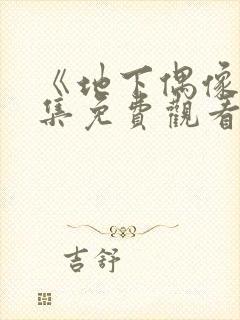 《地下偶像
集免費觀看
吉舒